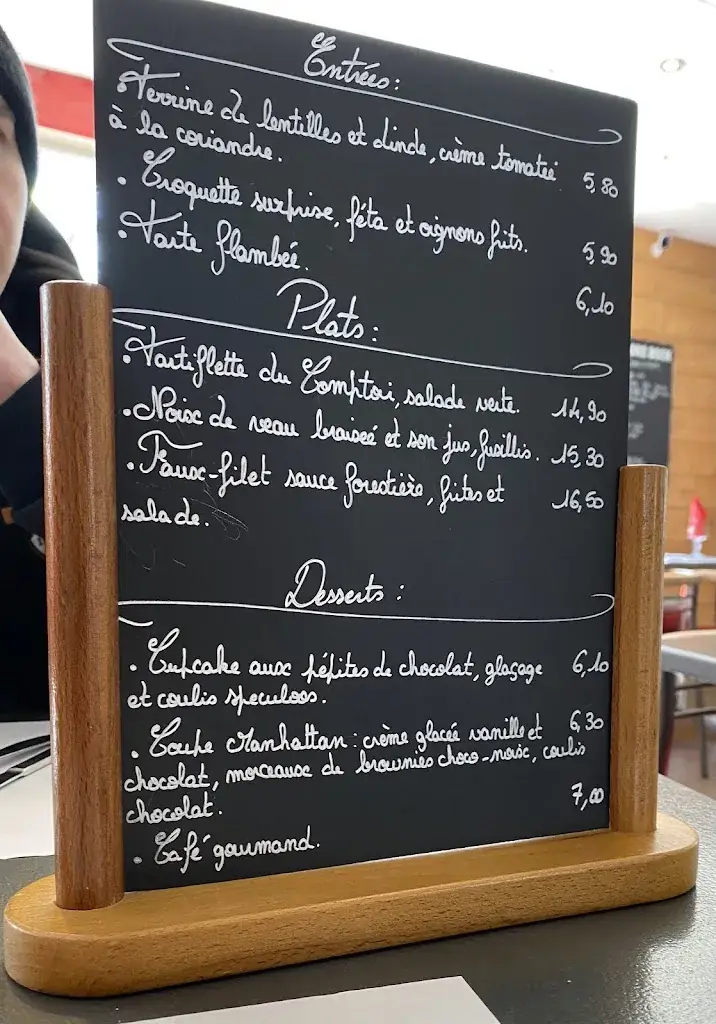 Entrées :
• Terrine de lentilles et dinde, crème tomatée 5,80
à la coriandre.
• Croquette surprise, féta et oignons frits. 5,90
• Tarte flambée. 6,10
Plats :
• Tartiflette du Comptoir, salade verte. 14,90
• Noix de veau braisée et son jus, fusillis. 15,30
• Faux-filet sauce forestière, frites et 16,50
salade.
Desserts :
• Cupcake aux pépites de chocolat, glaçage 6,10
et coulis speculoos.
• Coupe Manhattan : crème glacée vanille et 6,30
chocolat, morceaux de brownies choco-noix, coulis
chocolat.
• Café gourmand. 7,00